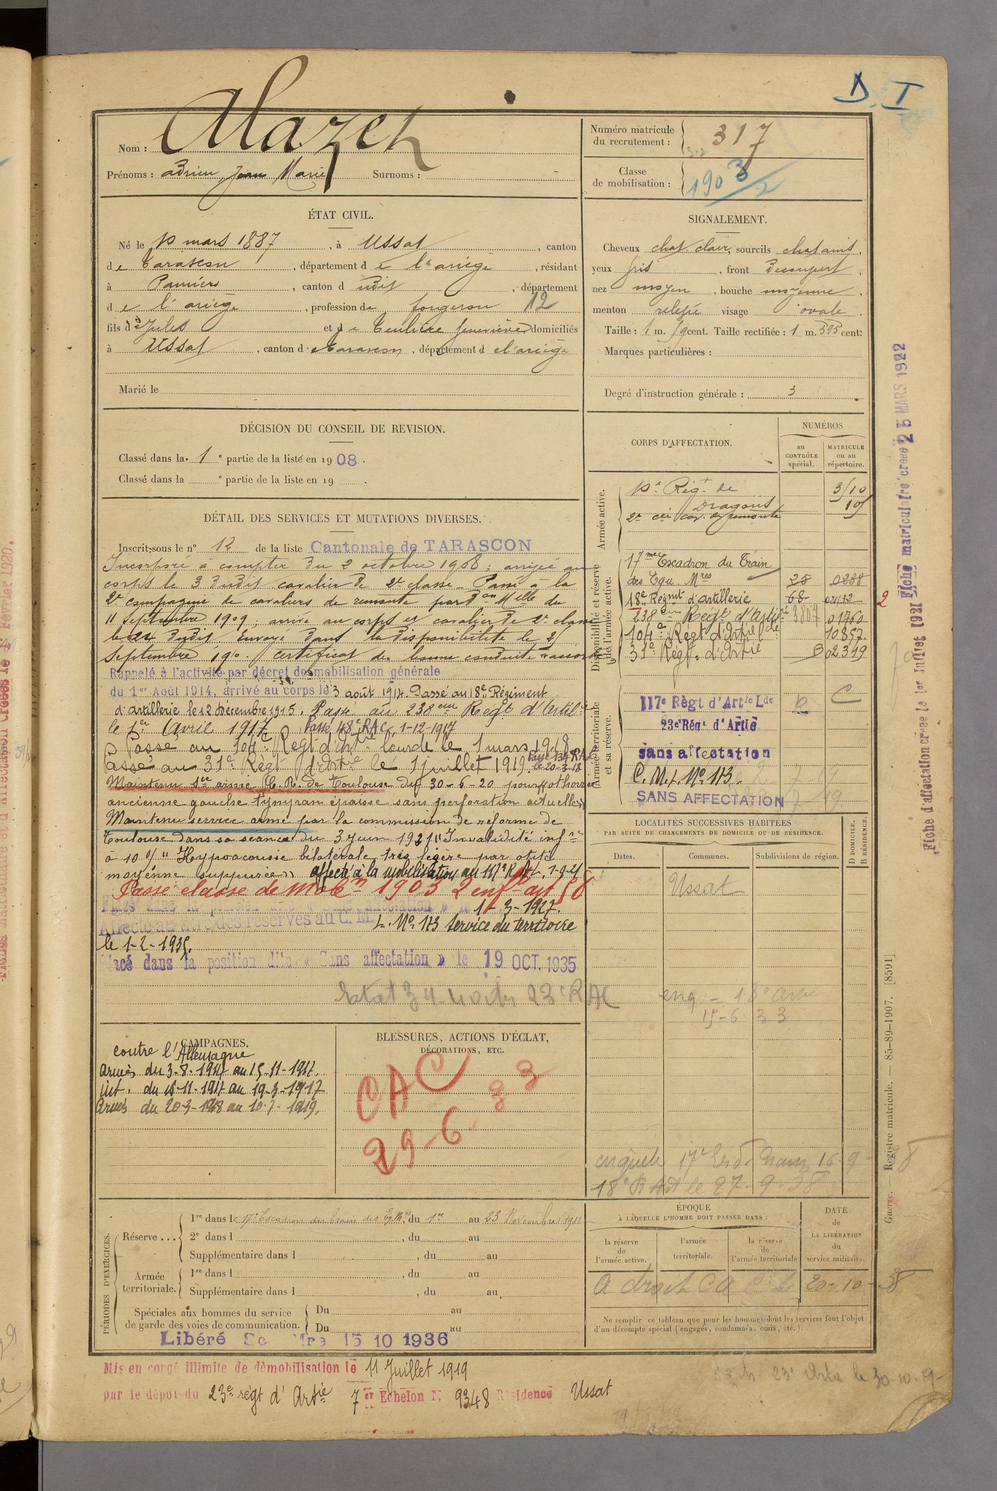 D. I
Nom : Alazet
Prénoms : Adrien Jean Marie Surnoms :
Numéro matricule du recrutement : 317
Classe de mobilisation : 1903
ÉTAT CIVIL.
Né le mars 1887, à Ussat, canton
de Tarascon, département de l'ariège, résidant
à Pamiers, canton d udit, département
de l'ariège, profession de forgeron 12
fils de Jules et de Geneviève domiciliés
à Ussat, canton de Tarascon, département de l'ariège
Marié le
SIGNALEMENT.
Cheveux chat clair, sourcils chatains,
yeux gris, front Decouvert,
nez moyen, bouche moyenne,
menton visage ovale
Taille : 1 m. 59 cent. Taille rectifiée : 1 m. 595 cent.
Marques particulières :
Degré d'instruction générale : 3
DÉCISION DU CONSEIL DE REVISION.
Classé dans la 1e partie de la liste en 1908.
Classé dans la e partie de la liste en 19 .
DÉTAIL DES SERVICES ET MUTATIONS DIVERSES.
Inscrit sous le n° 12 de la liste Cantonale de TARASCON
Incorporé à compter du 2 octobre 1908 ; arrivé au
corps le 3 dudit cavalier de 2e classe. Passé à la
2e compagnie de cavaliers de remonte par Don Mlle du
11 Septembre 1909 ; arrivé au corps et cavalier de 2e classe
le dudit. Envoyé dans la disponibilité le 2
Septembre 1910. Certificat de bonne conduite accordé
Rappelé à l'activité par décret de mobilisation générale
du 1er Août 1914, arrivé au corps le 3 août 1914. Passé au 18e Régiment
d'artillerie le 12 Décembre 1915. Passé au 238eme Régt d'Artie
le 1er Avril 1917 Passé 48e RAC 1-12-1917
Passé au 104e Régt d'Artie Lourde le 1 mars 1919
Passé au 31e Régt d'Artie le 1 juillet 1919.
Maintenu Sce armé C. R. de Toulouse du 30-6-20 pour otorrée
ancienne gauche tympan épaissi sans perforation actuelle
Maintenu service armé par la commission de réforme de
Toulouse dans sa séance du 3 juin 1921 "Invalidité infre
à 10 % " Hypoacousie bilatérale très légère par otite
moyenne suppurée" affecté à la mobilisation au 117e R.A.L. 1-9-24
Passé classe de Mobon 1903 2 enfts art 58
1-3-1927.
Affecté au titre des réserves au C. M. I. No. 173 Service du territoire
le 1-2-1935.
Placé dans la position dite « Sans affectation » le 19 OCT. 1935
23e RAC
CORPS D'AFFECTATION.
NUMÉROS
au CONTRÔLE spécial.
MATRICULE ou au répertoire.
Armée active.
Régt de Dragons
2e cie cav. de remonte
Disponibilité et réserve de l'armée active.
17me Escadron du Train
des Equ. Mres 28 0288
18e Regmt d'artillerie 68
2
238eme Régt d'Artie 01760
104e Régt d'Artie 10857
31e Régt d'Artie 02319
Armée territoriale et sa réserve.
117e Règt d'Artie Lde C
23e Régt d'Artie
sans affectation
C. M. I. No. 173
SANS AFFECTATION
Fiche matriculaire créée 25 MARS 1922
Fiche d'affectation créée le 1er Juillet 1931
LOCALITÉS SUCCESSIVES HABITÉES
PAR SUITE DE CHANGEMENTS DE DOMICILE OU DE RÉSIDENCE.
Dates. Communes. Subdivisions de région. D DOMICILE. R RÉSIDENCE.
Ussat
enq - 18e
15-6 33
CAMPAGNES.
contre l'Allemagne
Armées du 3-8-1914 au 15-11-1914.
int. du 16-11-1914 au 19-3-1917
Armées du 20-3-1918 au 10-7-1919.
BLESSURES, ACTIONS D'ÉCLAT,
DÉCORATIONS, ETC.
CAC
29-6. 33
enquete 17e Esd. Train 16-9-38
18e R Art le 27-9-38
Guerre. — Registre matricule. — 85-89-1907. [8591]
PÉRIODES D'EXERCICES.
Réserve ....
1re dans le 17e Escadron du train des Eq. Mres, du 1er au 23 Novembre 1911
2e dans l , du au
Supplémentaire dans l , du au
Armée territoriale.
1re dans l , du au
Supplémentaire dans l , du au
Spéciales aux hommes du service de garde des voies de communication.
Du au
Du au
Libéré Sce Mre 15 10 1936
ÉPOQUE
À LAQUELLE L'HOMME DOIT PASSER DANS :
la réserve de l'armée active.
l'armée territoriale.
la réserve de l'armée territoriale
DATE de LA LIBÉRATION du service militaire.
A droit CA 20-10-38
Ne remplir ce tableau que pour les hommes dont les services font l'objet
d'un décompte spécial (engagés, condamnés, omis, etc.).
Mis en congé illimité de démobilisation le 11 Juillet 1919
par le dépôt du 23e régt d'Artie 7e Echelon N° 9348 Résidence Ussat